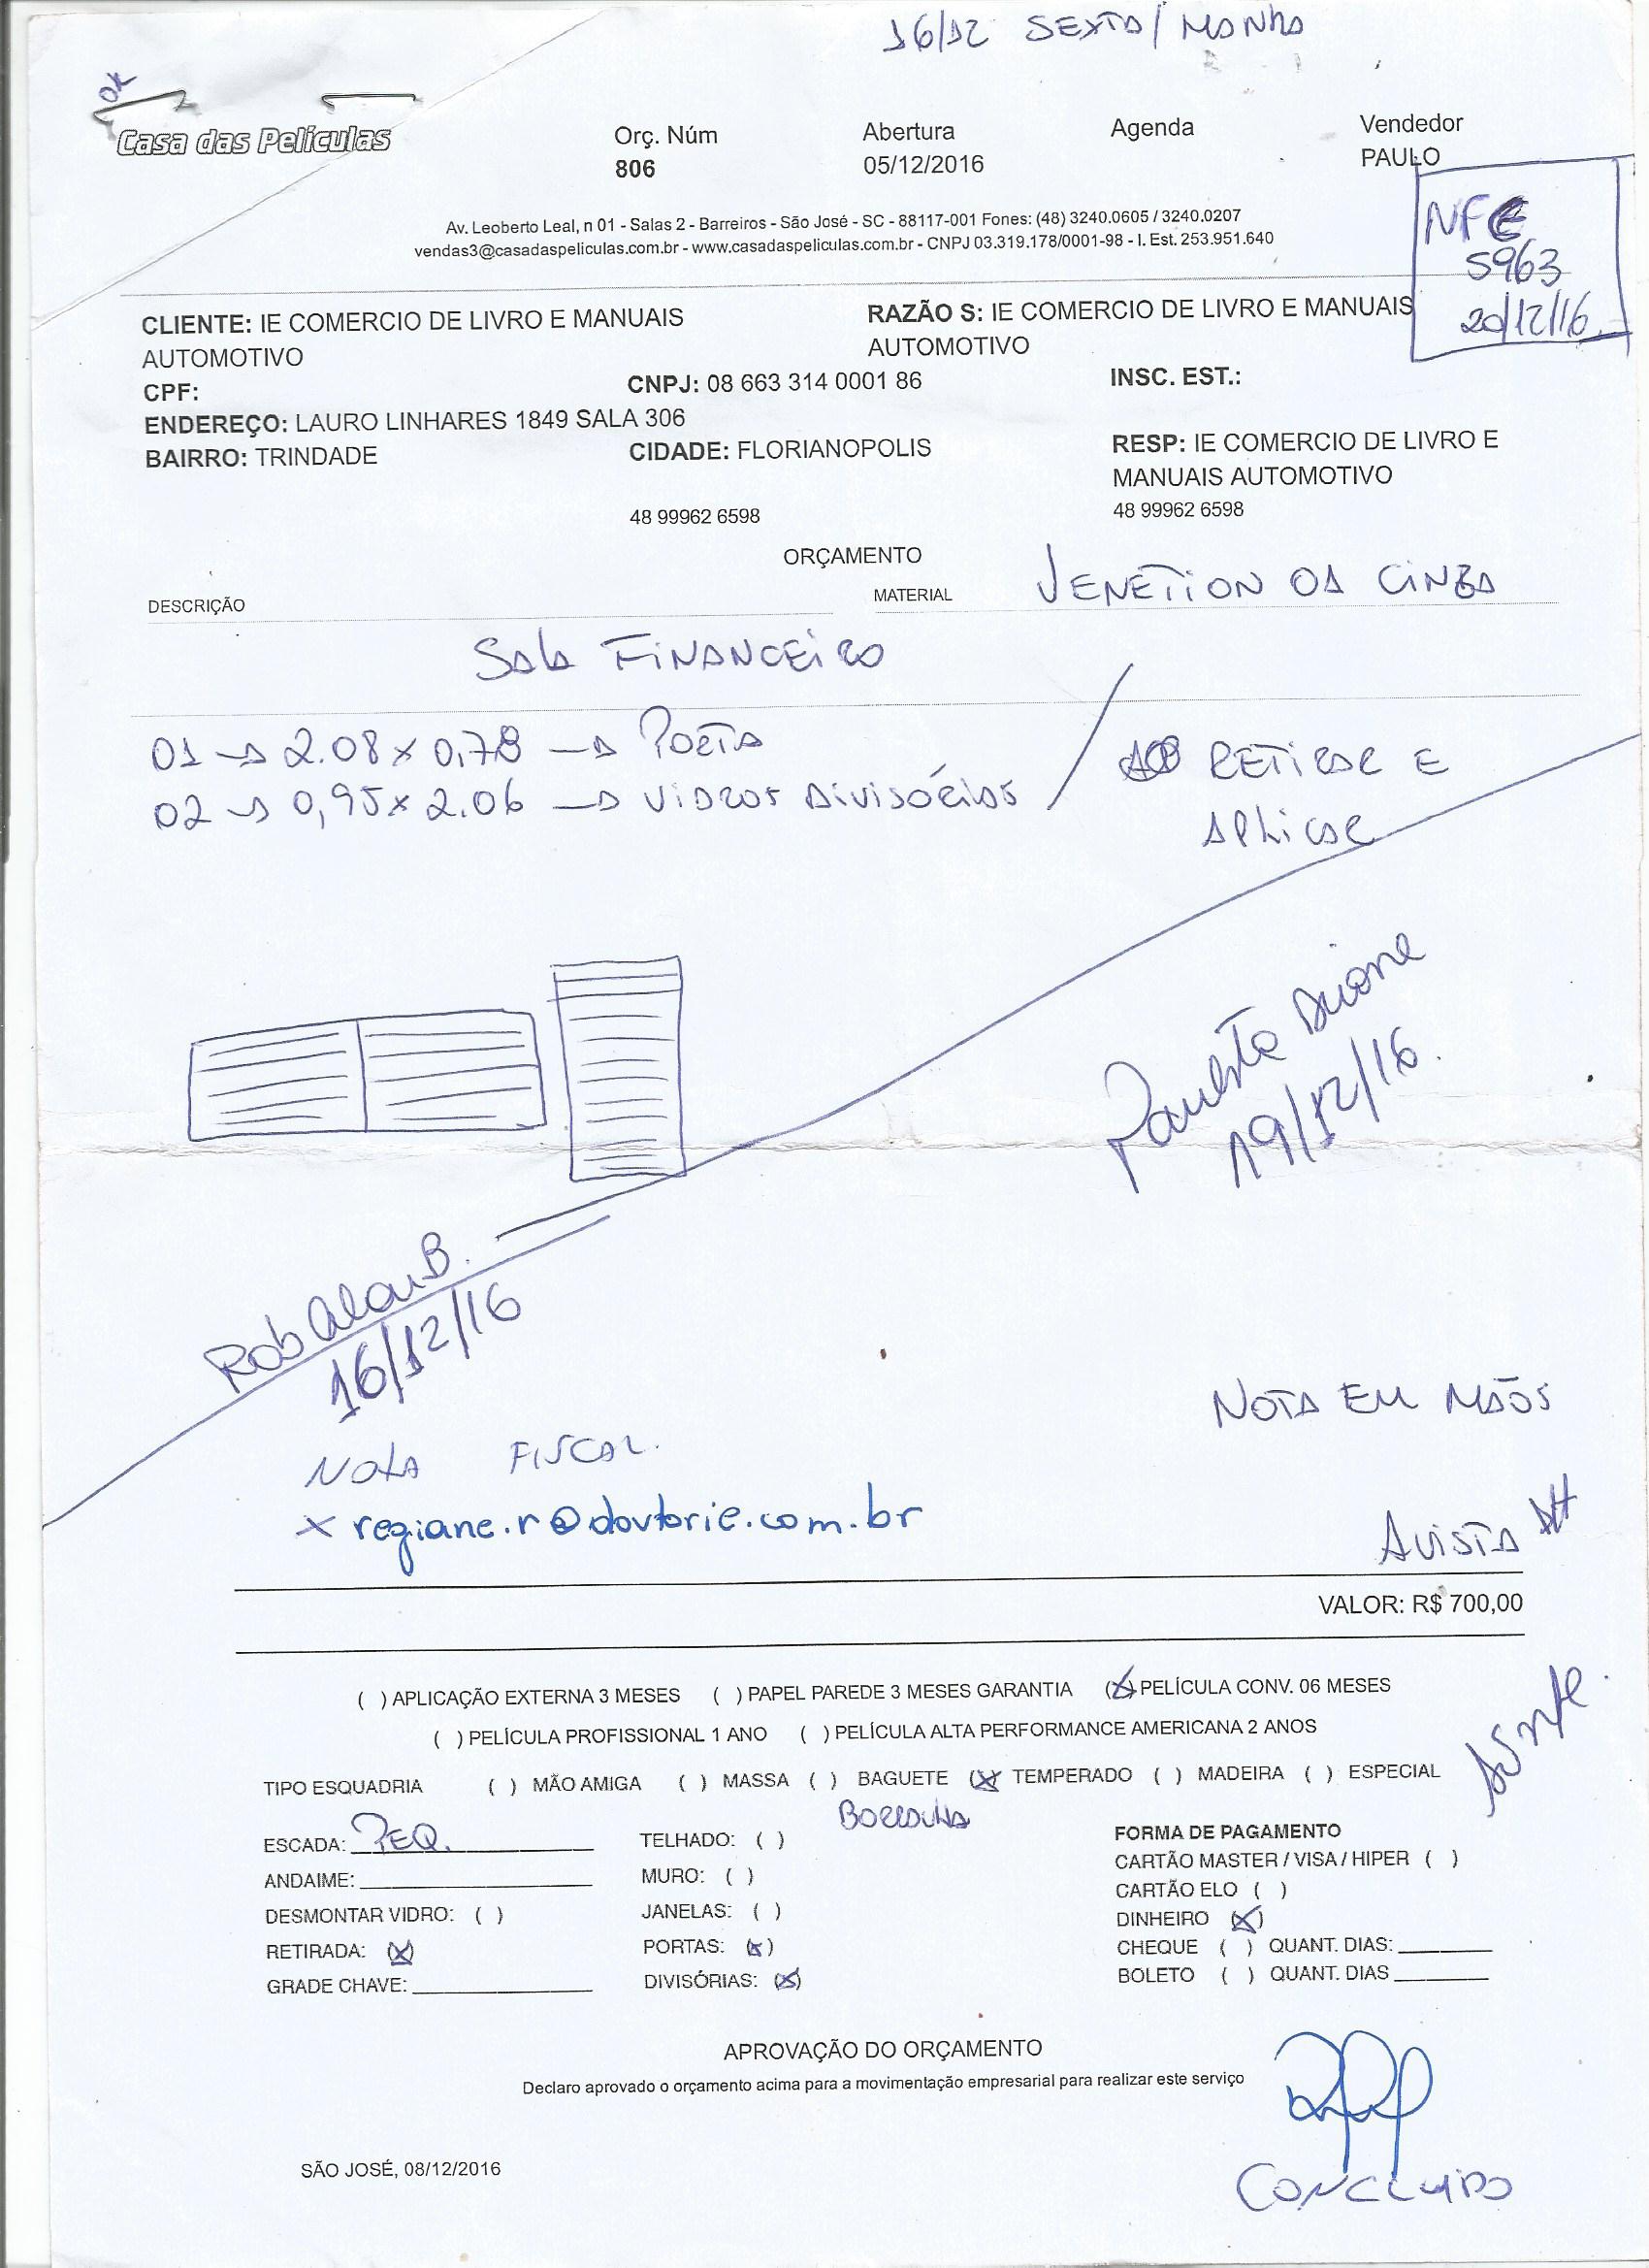 16/12 SEXTA/MANHA
OK
Casa das Películas
Orç. Núm
806
Abertura
05/12/2016
Agenda
Vendedor
PAULO
NFE
5963
20/12/16
Av. Leoberto Leal, n 01 - Salas 2 - Barreiros - São José - SC - 88117-001 Fones: (48) 3240.0605 / 3240.0207
vendas3@casadaspeliculas.com.br - www.casadaspeliculas.com.br - CNPJ 03.319.178/0001-98 - I. Est. 253.951.640
CLIENTE: IE COMERCIO DE LIVRO E MANUAIS
AUTOMOTIVO
RAZÃO S: IE COMERCIO DE LIVRO E MANUAIS
AUTOMOTIVO
CPF:
CNPJ: 08 663 314 0001 86
INSC. EST.:
ENDEREÇO: LAURO LINHARES 1849 SALA 306
BAIRRO: TRINDADE
CIDADE: FLORIANOPOLIS
RESP: IE COMERCIO DE LIVRO E
MANUAIS AUTOMOTIVO
48 99962 6598
48 99962 6598
ORÇAMENTO
DESCRIÇÃO
MATERIAL
VENETION 01 CINZA
SALA FINANCEIRO
01 → 2.08 x 0,78 → PORTA
02 → 0,95 x 2.06 → VIDROS DIVISÓRIAS
RETIRAR E
APLICAR
19/12/16.
Rob Alan B.
16/12/16
NOTA FISCAL.
x regiane.r@doutorie.com.br
NOTA EM MÃOS
AVISTA
VALOR: R$ 700,00
( ) APLICAÇÃO EXTERNA 3 MESES ( ) PAPEL PAREDE 3 MESES GARANTIA (X) PELÍCULA CONV. 06 MESES
( ) PELÍCULA PROFISSIONAL 1 ANO ( ) PELÍCULA ALTA PERFORMANCE AMERICANA 2 ANOS
TIPO ESQUADRIA ( ) MÃO AMIGA ( ) MASSA ( ) BAGUETE (X) TEMPERADO ( ) MADEIRA ( ) ESPECIAL
BORRACHA
ESCADA: PEQ.
ANDAIME:
DESMONTAR VIDRO: ( )
RETIRADA: (X)
GRADE CHAVE:
TELHADO: ( )
MURO: ( )
JANELAS: ( )
PORTAS: (X)
DIVISÓRIAS: (X)
FORMA DE PAGAMENTO
CARTÃO MASTER / VISA / HIPER ( )
CARTÃO ELO ( )
DINHEIRO (X)
CHEQUE ( ) QUANT. DIAS:
BOLETO ( ) QUANT. DIAS
APROVAÇÃO DO ORÇAMENTO
Declaro aprovado o orçamento acima para a movimentação empresarial para realizar este serviço
SÃO JOSÉ, 08/12/2016
CONCLUIDO